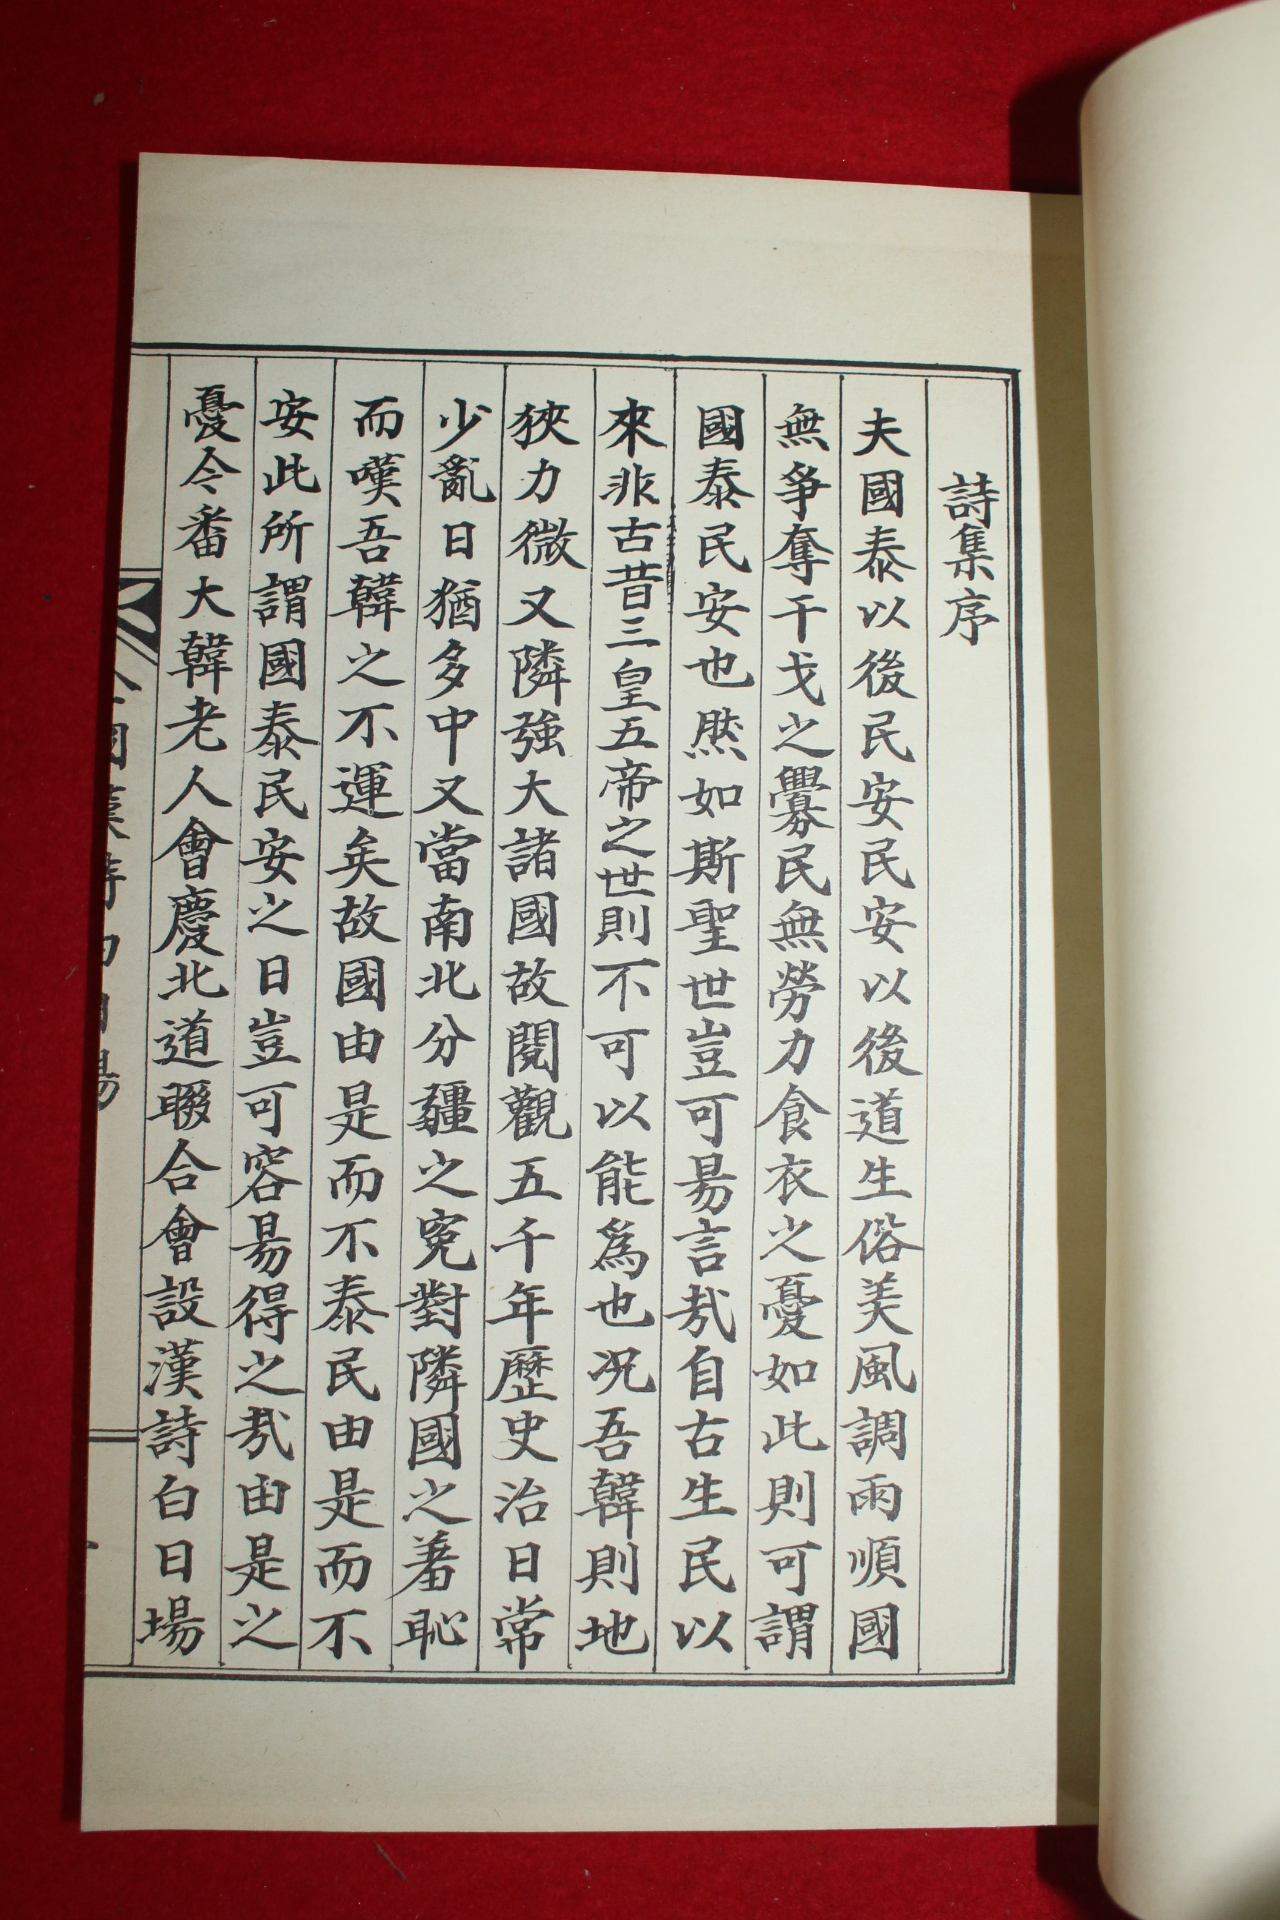 詩集序
夫國泰以後民安民安以後道生俗美風調雨順國
無爭奪干戈之釁民無勞力食衣之憂如此則可謂
國泰民安也然如斯聖世豈可易言哉自古生民以
來非古昔三皇五帝之世則不可以能爲也况吾韓則地
狹力微又隣強大諸國故閱觀五千年歷史治日常
少亂日猶多中又當南北分疆之寃對隣國之羞恥
而嘆吾韓之不運矣故國由是而不泰民由是而不
安此所謂國泰民安之日豈可容易得之哉由是之
憂今番大韓老人會慶北道聯合會設漢詩白日場
國漢詩白日場